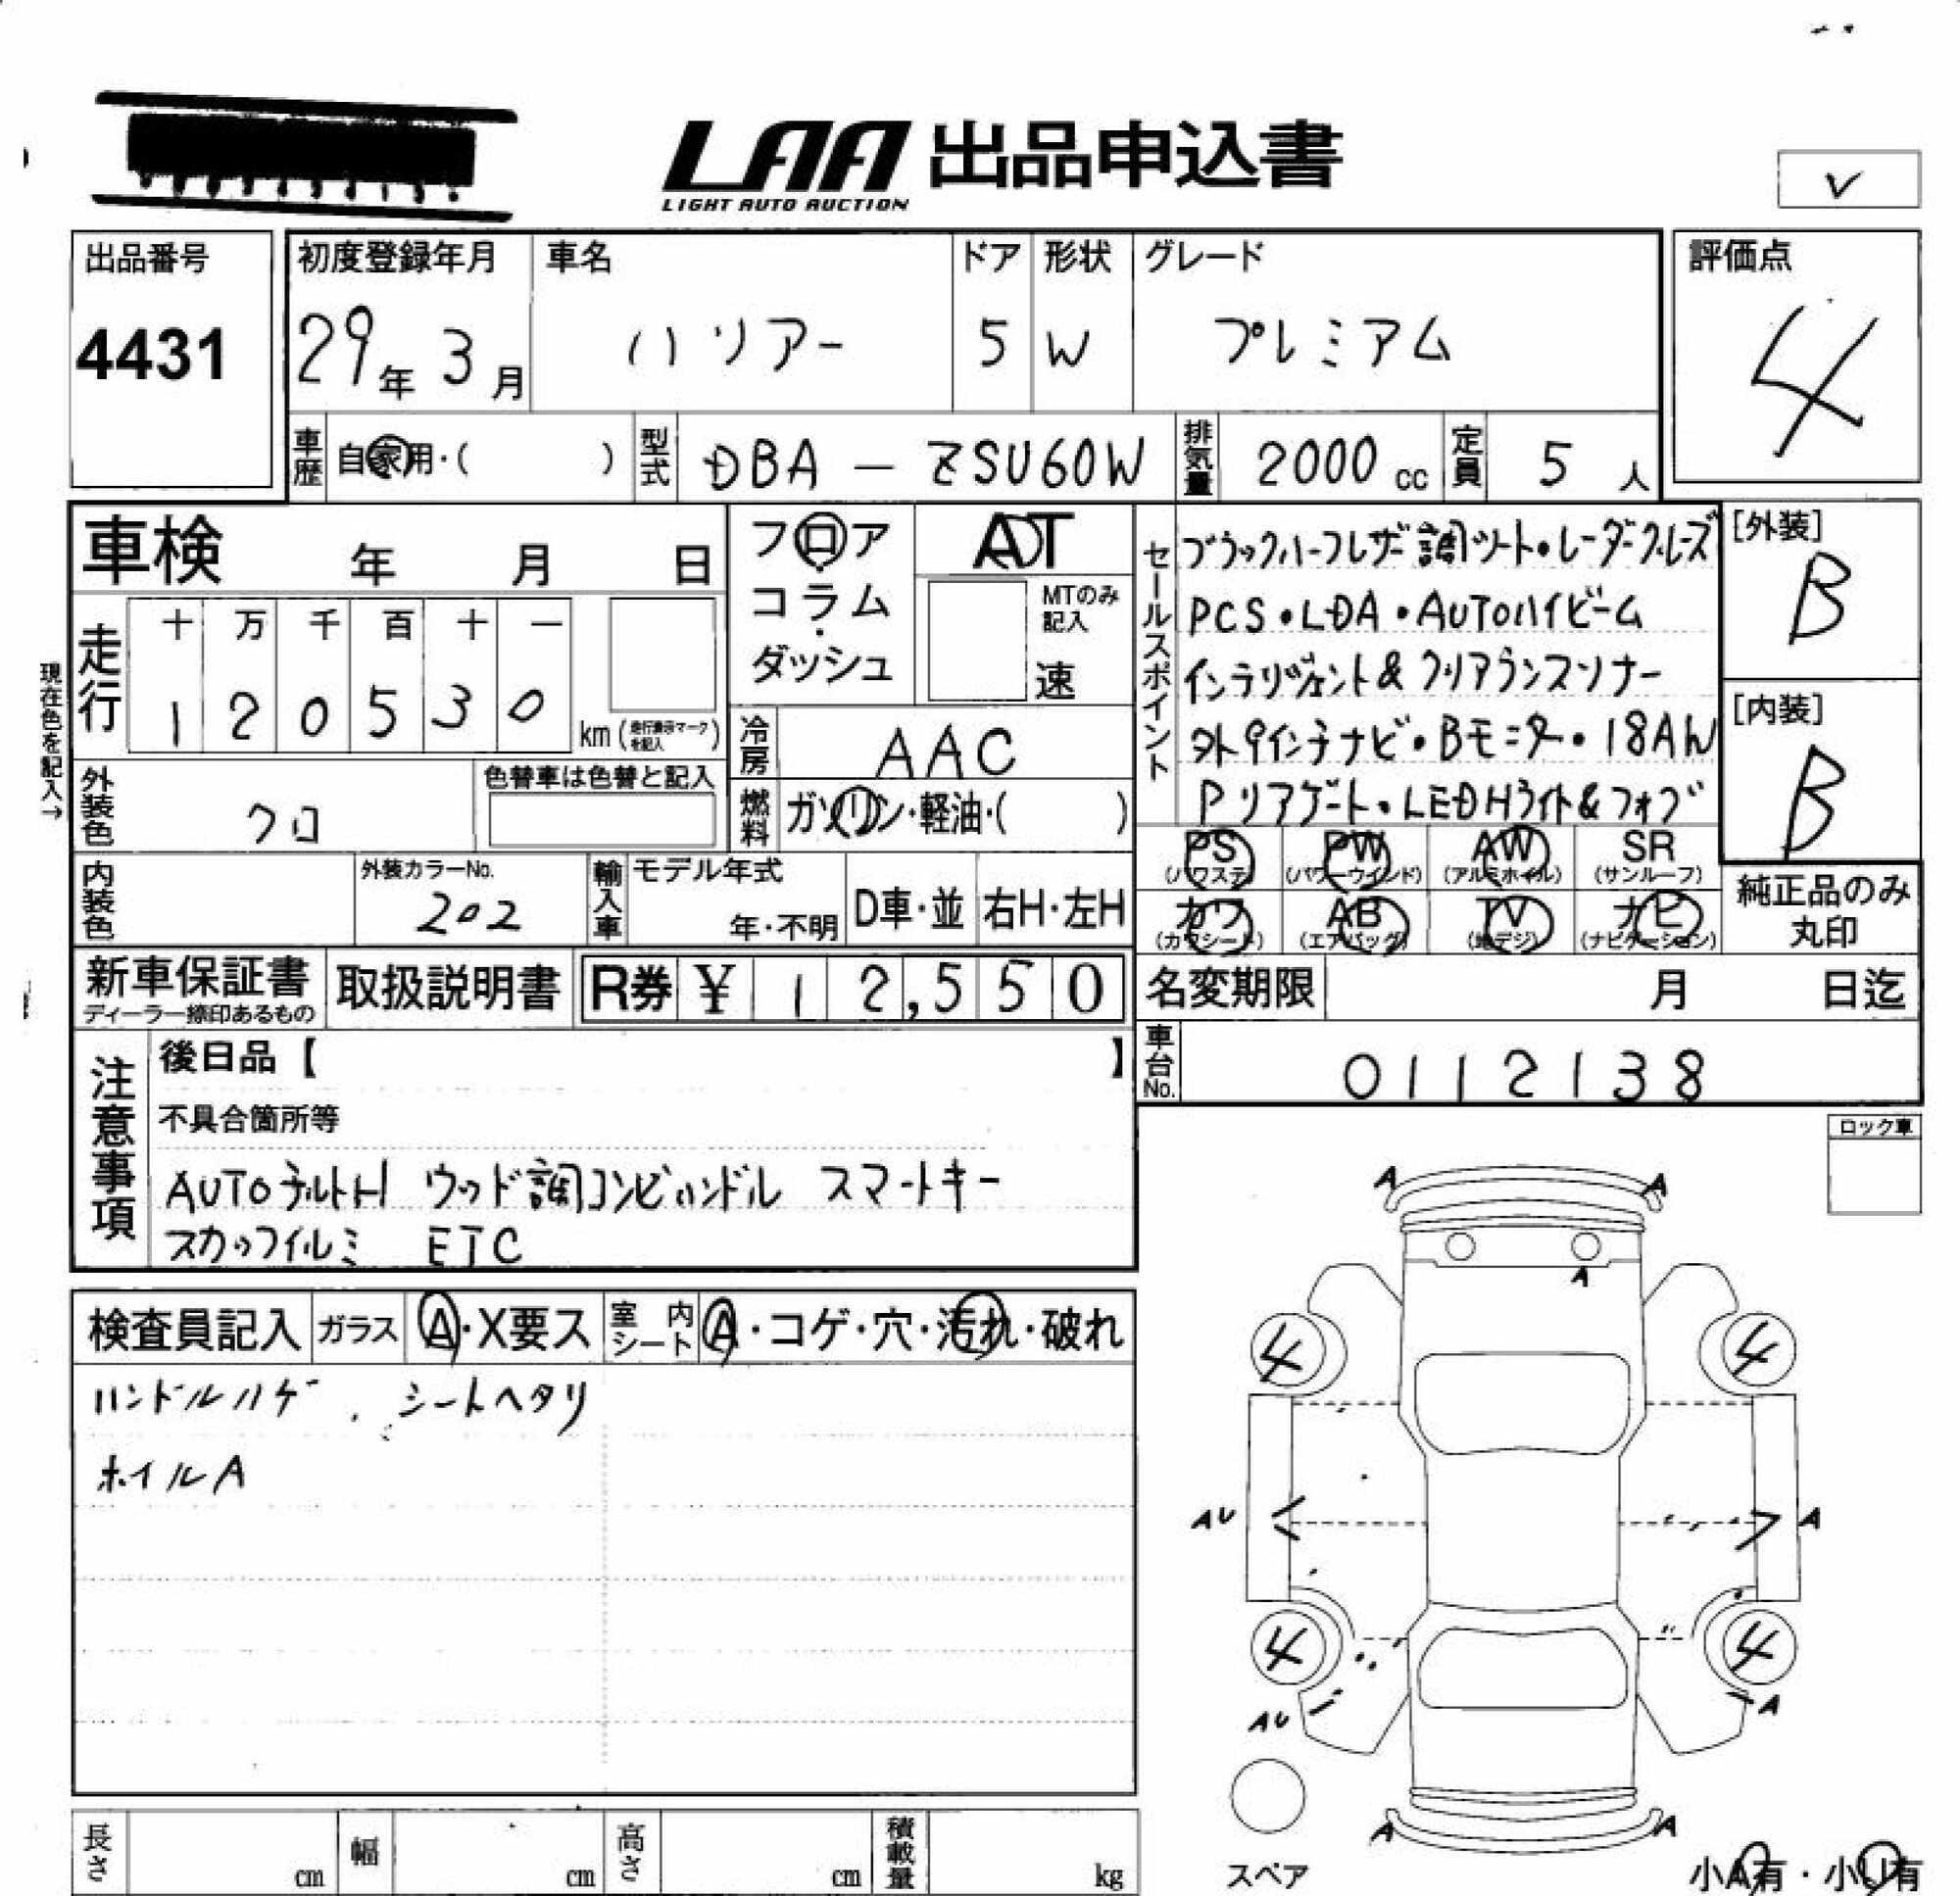 LAA 出品申込書
LIGHT AUTO AUCTION
✓
出品番号
4431
初度登録年月
29年 3月
車名
ハリアー
ドア
5
形状
W
グレード
プレミアム
評価点
4
車歴 自家用・( )
型式 DBA - ZSU60W
排気量 2000 cc
定員 5 人
車検 年 月 日
フロア
コラム
ダッシュ
AT
MTのみ記入
速
セールスポイント
ブラックハーフレザー調シート・レーダークルーズ
PCS・LDA・AUTOハイビーム
インテリジェント&クリアランスソナー
外9インチナビ・Bモニター・18AW
Pリアゲート・LEDHライト&フォグ
[外装]
B
[内装]
B
現在色を記入→
走行
十 万 千 百 十 一
1 2 0 5 3 0
km(走行表示マークを記入)
冷房 AAC
燃料 ガソリン・軽油・( )
外装色 クロ
色替車は色替と記入
内装色
外装カラーNo.
202
輸入車
モデル年式
年・不明
D車・並
右H・左H
PS (パワステ)
PW (パワーウインド)
AW (アルミホイル)
SR (サンルーフ)
カワ (カワシート)
AB (エアバッグ)
TV (地デジ)
ナビ (ナビゲーション)
純正品のみ
丸印
新車保証書
ディーラー捺印あるもの
取扱説明書
R券 ¥ 12,550
名変期限 月 日迄
車台No. 0112138
注意事項
後日品【 】
不具合箇所等
AUTOチルトH ウッド調コンビハンドル スマートキー
スカッフイルミ ETC
ロック車
検査員記入
ガラス A・X要ス
室内シート A・コゲ・穴・汚れ・破れ
ハンドルハゲ、シートヘタリ
ホイルA
A A
A
4 4
AU A
4 4
AU A
A A
スペア
小A有・小U有
長さ cm
幅 cm
高さ cm
積載量 kg